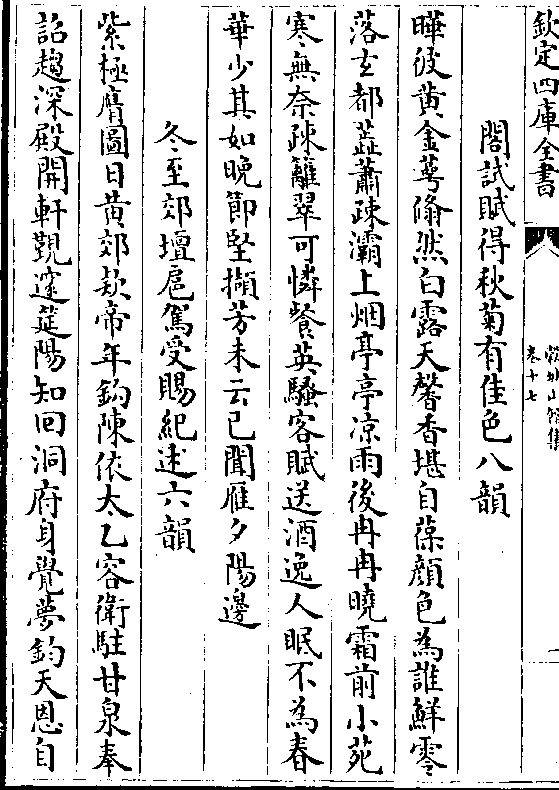 欽定四庫全書
卷十七
閣試賦得秋菊有佳色八韻
曄彼黄金萼翛然白露天馨香堪自葆顔色為誰鮮零
落玄都蘂蕭疎灞上烟亭亭凉雨後冉冉曉霜前小苑
寒無奈疎籬翠可憐餐英騷客賦送酒逸人眠不為春
華少其如晚節堅擷芳未云已聞雁夕陽邊
冬至郊壇扈駕受賜紀述六韻
紫極膺圖日黄郊欵帝年鈎陳依太乙容衛駐甘泉奉
詔趨深殿開軒覲邃筵陽知回洞府身覺夢鈞天恩自